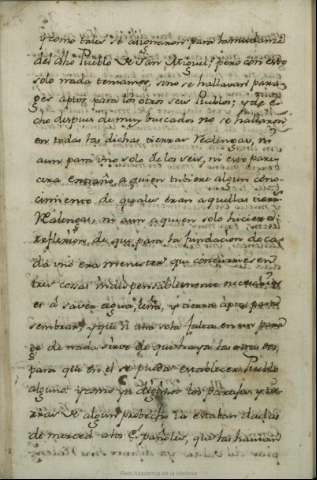 y como tales se asignaron para
del dho Pueblo de San Miguel; pero con esto
solo nada teniamos, sino se hallavan para-
ges aptos para los otros seis Pueblos; y de
cho despues de muy buscados no se hallaron
en todas las dichas tierras Realengas, ni
aun para uno solo de los seis, ni esto pare-
cera estraño, a quien tubiere algun cono-
cimiento, de quales eran aquellas tierras
Realengas, ni aun a quien solo hiciere
reflexion, de que para la fundacion de ca-
da uno era menester que concurriesen
tres cosas indispensablemente necesarias
es a saver agua, leña, y tierra apta para
sembrar; y que si una sola falta en un para-
ge de nada sirve de que haya las otras dos,
para que en el se pueda establecer Pueblo
alguno y como ya dijimos los parajes y tier-
rras de algun probecho ia estaban dadas
de merced a los Españoles, que las havian
Real Academia de la Historia